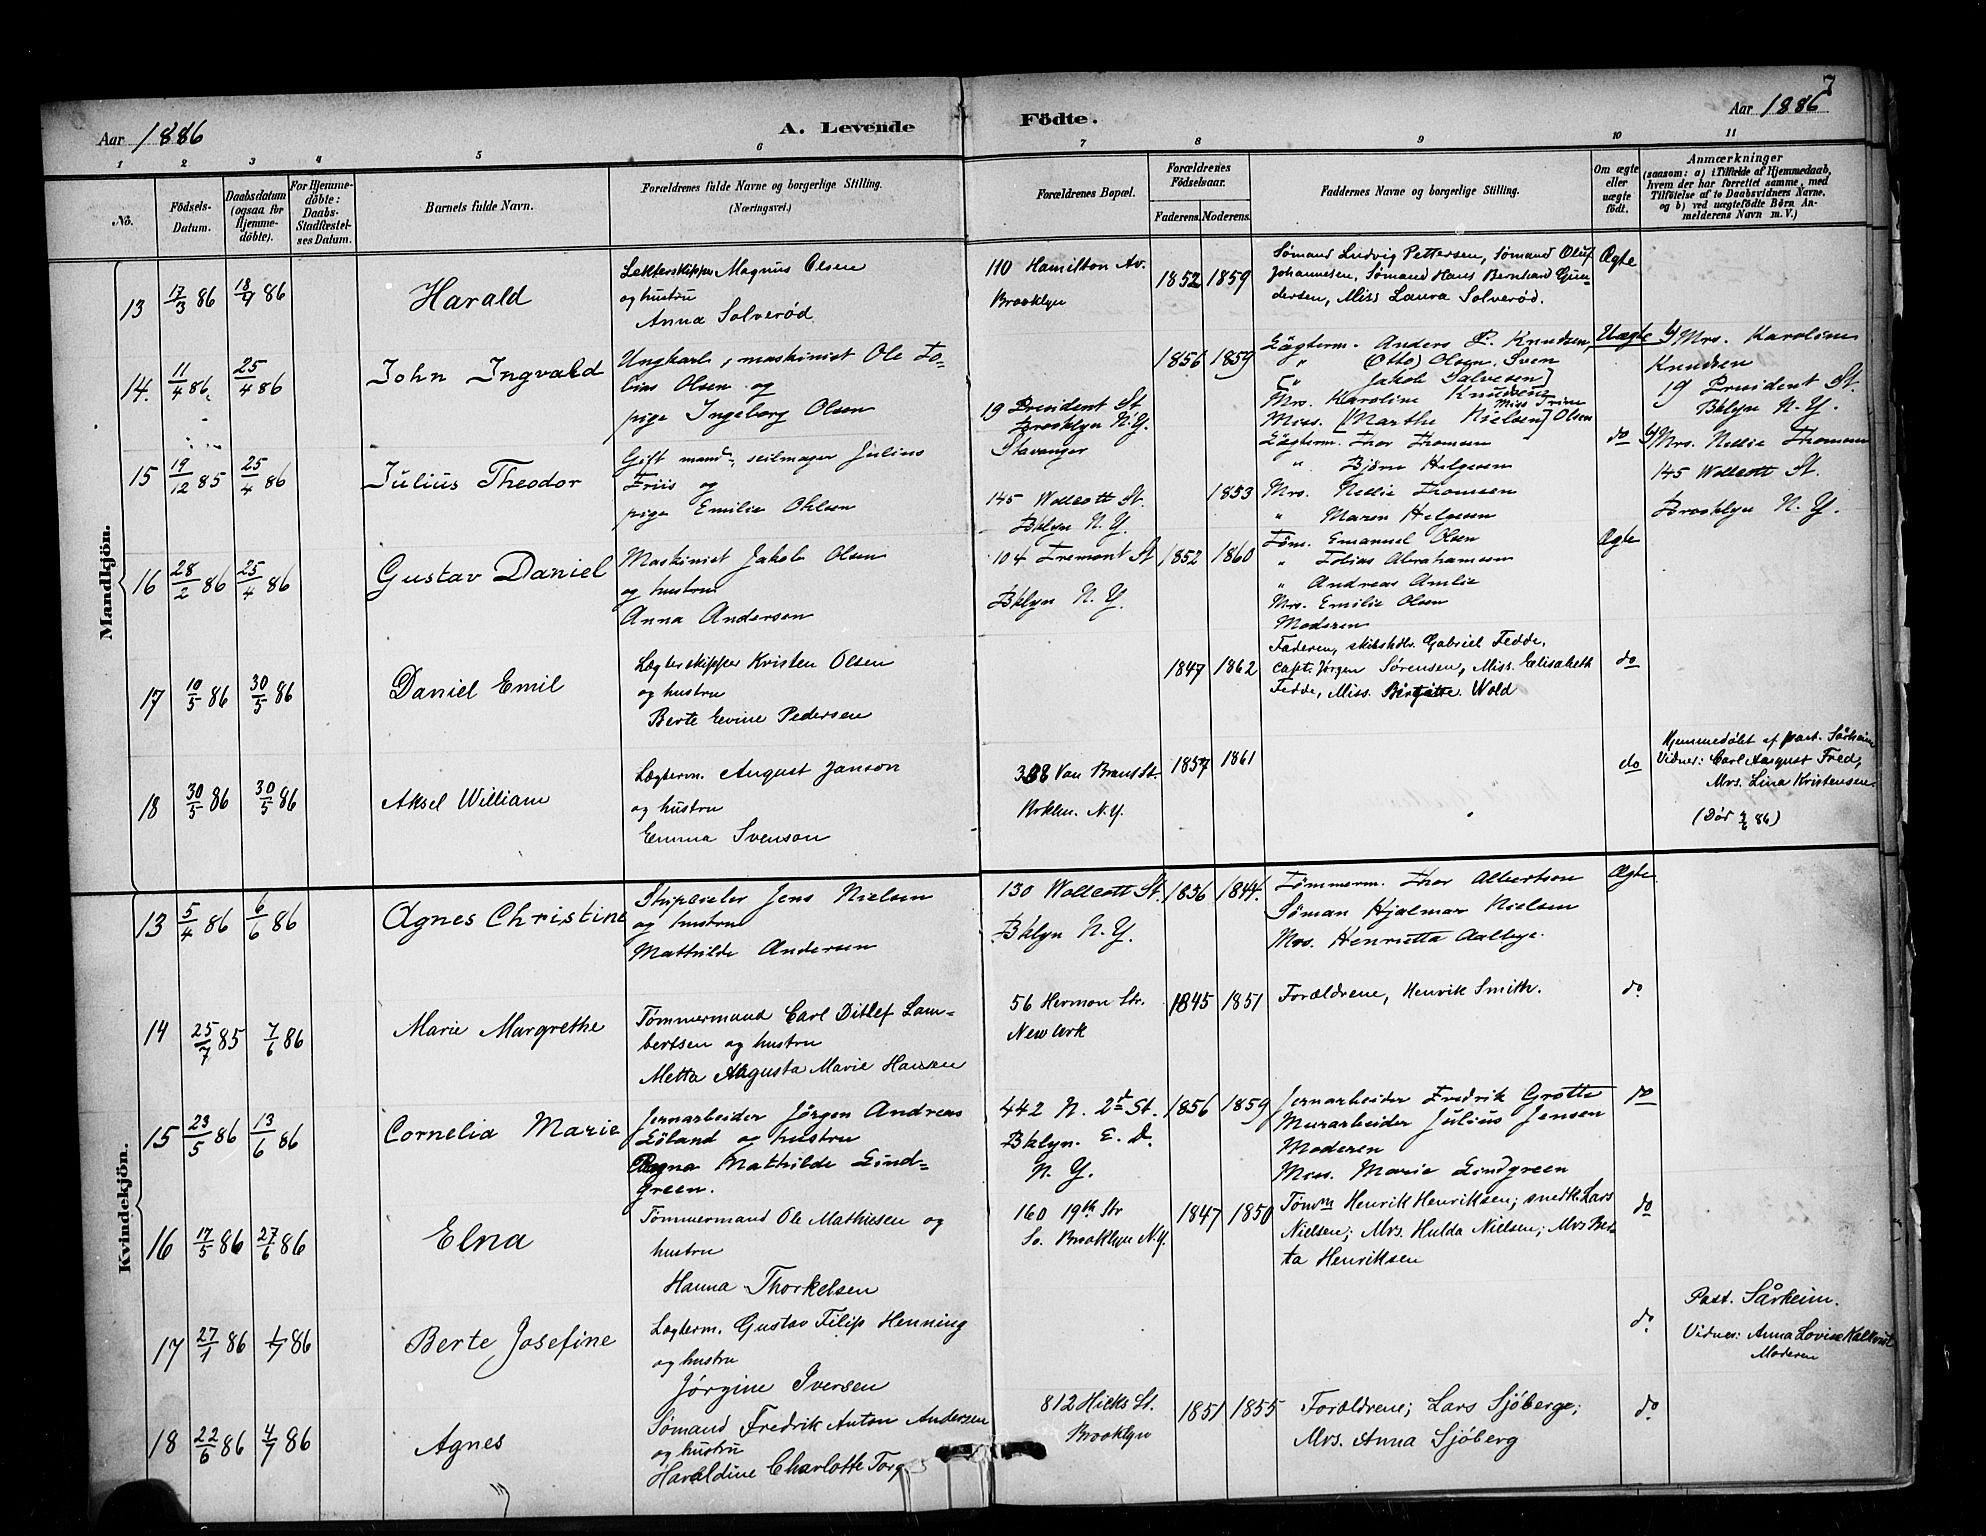 7
Aar 1886
A. Levende
Födte.
Aar 1886
1 2 3 4 5 6 7 8 9 10 11
Nô.
Födsels-
Datum.
Daabsdatum
(ogsaa for
Hjemme-
döbte).
For Hjemme-
döbte:
Daabs-
Stadfæstel-
ses Datum.
Barnets fulde Navn.
Forældrenes fulde Navne og borgerlige Stilling.
(Næringsvei.)
Forældrenes Bopæl.
Forældrenes
Födselsaar.
Faderens. Moderens.
Faddernes Navne og borgerlige Stilling.
Om ægte
eller
uægte
födt.
Anmærkninger
(saasom: a) i Tilfælde af Hjemmedaab,
hvem der har forrettet samme, med
Tilföielse af to Daabsvidners Navne,
og b) ved uægtefödte Börn An-
melderens Navn m. V.)
Mandkjön.
13 17/3 86 18/4 86
Harald
Lekterskipper Magnus Olsen
og hustru
Anna Solverød
110 Hamilton Av.
Brooklyn
1852 1859
Sømand Ludvig Pettersen, Sømand Oluf
Johannesen, Sømand Hans Bernhard Gun-
dersen, Miss Laura Solverød.
Ægte
14. 11/4 86 25/4 86
John Ingvald
Ungkarl, maskinist Ole To-
bias Olsen og
pige Ingeborg Olsen
19 President St
Brooklyn N.Y.
Stavanger
1856 1859
Lægterm. Anders P. Knudsen,
" (Otto) Olsen, Sven
" Jakob Salvesen
Mrs. Karoline Knudsen
Miss Trine
Miss. [Marthe Nielsen] Olsen
Uægte
b/ Mrs. Karoline
Knudsen
19 President St.
Bklyn N.Y.
15 19/12 85 25/4 86
Julius Theodor
Gift mand, seilmager Julius
Friis og
pige Emilie Ohlsen
145 Wollcott St.
Bklyn N.Y.
1853
Lægterm. Thor Thomsen
" Bjørn Helgesen
Mrs. Nellie Thomsen
" Maren Helgesen
do
b/ Mrs. Nellie Thomsen
145 Wollcott St.
Brooklyn N.Y.
16 28/2 86 25/4 86
Gustav Daniel
Maskinist Jakob Olsen
og hustru
Anna Andersen
104 Tremont St
Bklyn N.Y.
1852 1860
Tøm. Emanuel Olsen
" Tobias Abrahamsen
" Andreas Amlie
Mrs. Emilie Olsen
Moderen
Ægte
17 10/5 86 30/5 86
Daniel Emil
Lægterskipper Kristen Olsen
og hustru
Berte Evine Pedersen
1847 1862
Faderen, skibshdlr. Gabriel Fedde,
Capt. Jørgen Sørensen, Miss. Elisabeth
Fedde, Miss. Birgitte Wold
do
18 30/5 86 30/5 86
Aksel William
Lægterm. August Janson
og hustru
Emma Svenson
388 Van Brunt St.
Brklm. N.Y.
1857 1861
do
Hjemmedøbt af past. Sårheim
Vidner: Carl August Fred,
Mrs. Lina Kristensen
(Dör 9/6 86)
Kvindekjön.
13 5/4 86 6/6 86
Agnes Christine
Jens Nielsen
og hustru
Mathilde Andersen
130 Wollcott St.
Bklyn N.Y.
1836 1844.
Tømmerm. Thor Albertson
Søman Hjalmar Nielsen
Mrs. Henrietta Aalbye.
Ægte
14 25/7 85 7/6 86
Marie Margrethe
Tømmermand Carl Ditlef Lam-
bertsen og hustru
Metta Augusta Marie Hansen
56 Hermon Str.
Newark
1845 1851
Forældrene, Henrik Smith.
do
15 23/5 86 13/6 86
Cornelia Marie
Jernarbeider Jørgen Andreas
Løland og hustru
Ragna Mathilde Lind-
green.
442 N. 2d St.
Bklyn. E. D.
N.Y.
1856 1859
Jernarbeider Fredrik Grotte
Murarbeider Julius Jensen
Moderen
Miss. Marie Lindgreen
do
16 17/5 86 27/6 86
Elna
Tømmermand Ole Mathisen og
hustru
Hanna Thorkelsen
160 19th Str
So. Brooklyn N.Y.
1847 1850
Tømm Henrik Henriksen; snedk. Lars
Nielsen; Mrs. Hulda Nielsen; Mrs Ber-
ta Henriksen
do
17 27/1 86 1/7 86
Berte Josefine
Lægterm. Gustav Filip Henning
og hustru
Jørgine Iversen
do
Past. Sårheim.
Vidner: Anna Lovise Kalkvist
Moderen
18 22/6 86 4/7 86
Agnes
Sømand Fredrik Anton Andersen
og hustru
Haraldine Charlotte
812 Hicks St.
Brooklyn
1851 1855
Forældrene; Lars Sjöberge;
Mrs. Anna Sjöberg
do